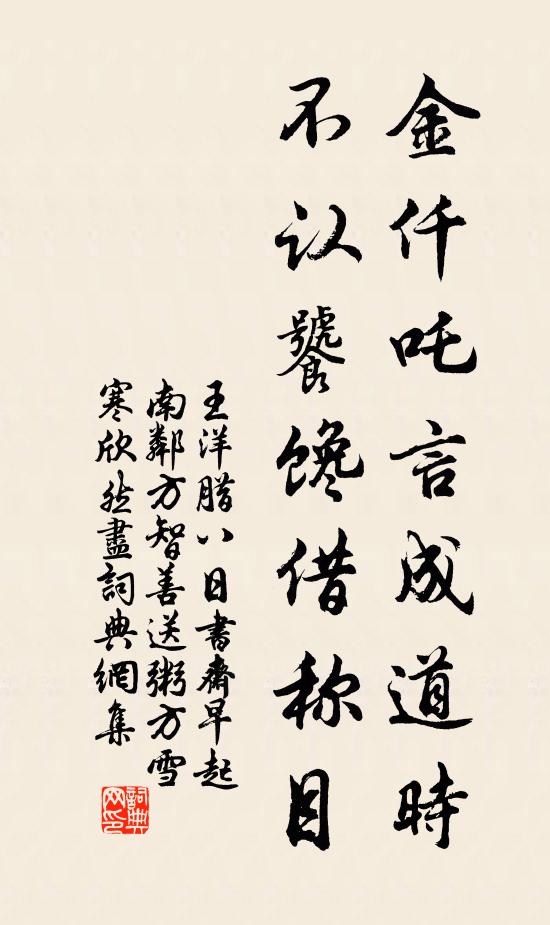 金仟吒言成道時
不认饕馋借称目
王洋腊八日書齋早起
南鄰方智善送粥方雪
寒欣然盡詞典網集
詞典网印